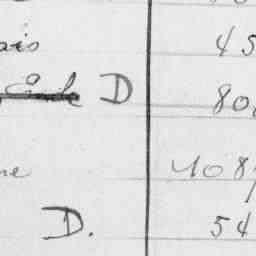 ais 45
D 80
ne 108
D. 54